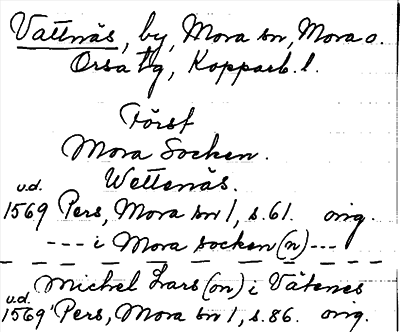 Vattnäs, by, Mora sn, Mora o.
Orsa tg, Kopparb. l.
Först
Mora Socken.
Wettenäs.
u.d.
1569 Pers, Mora sn 1, s. 61. orig.
--- i Mora socken (n) ---
Michel Lars(on) i Vätenes
u.d.
1569 Pers, Mora sn 1, s. 86. orig.